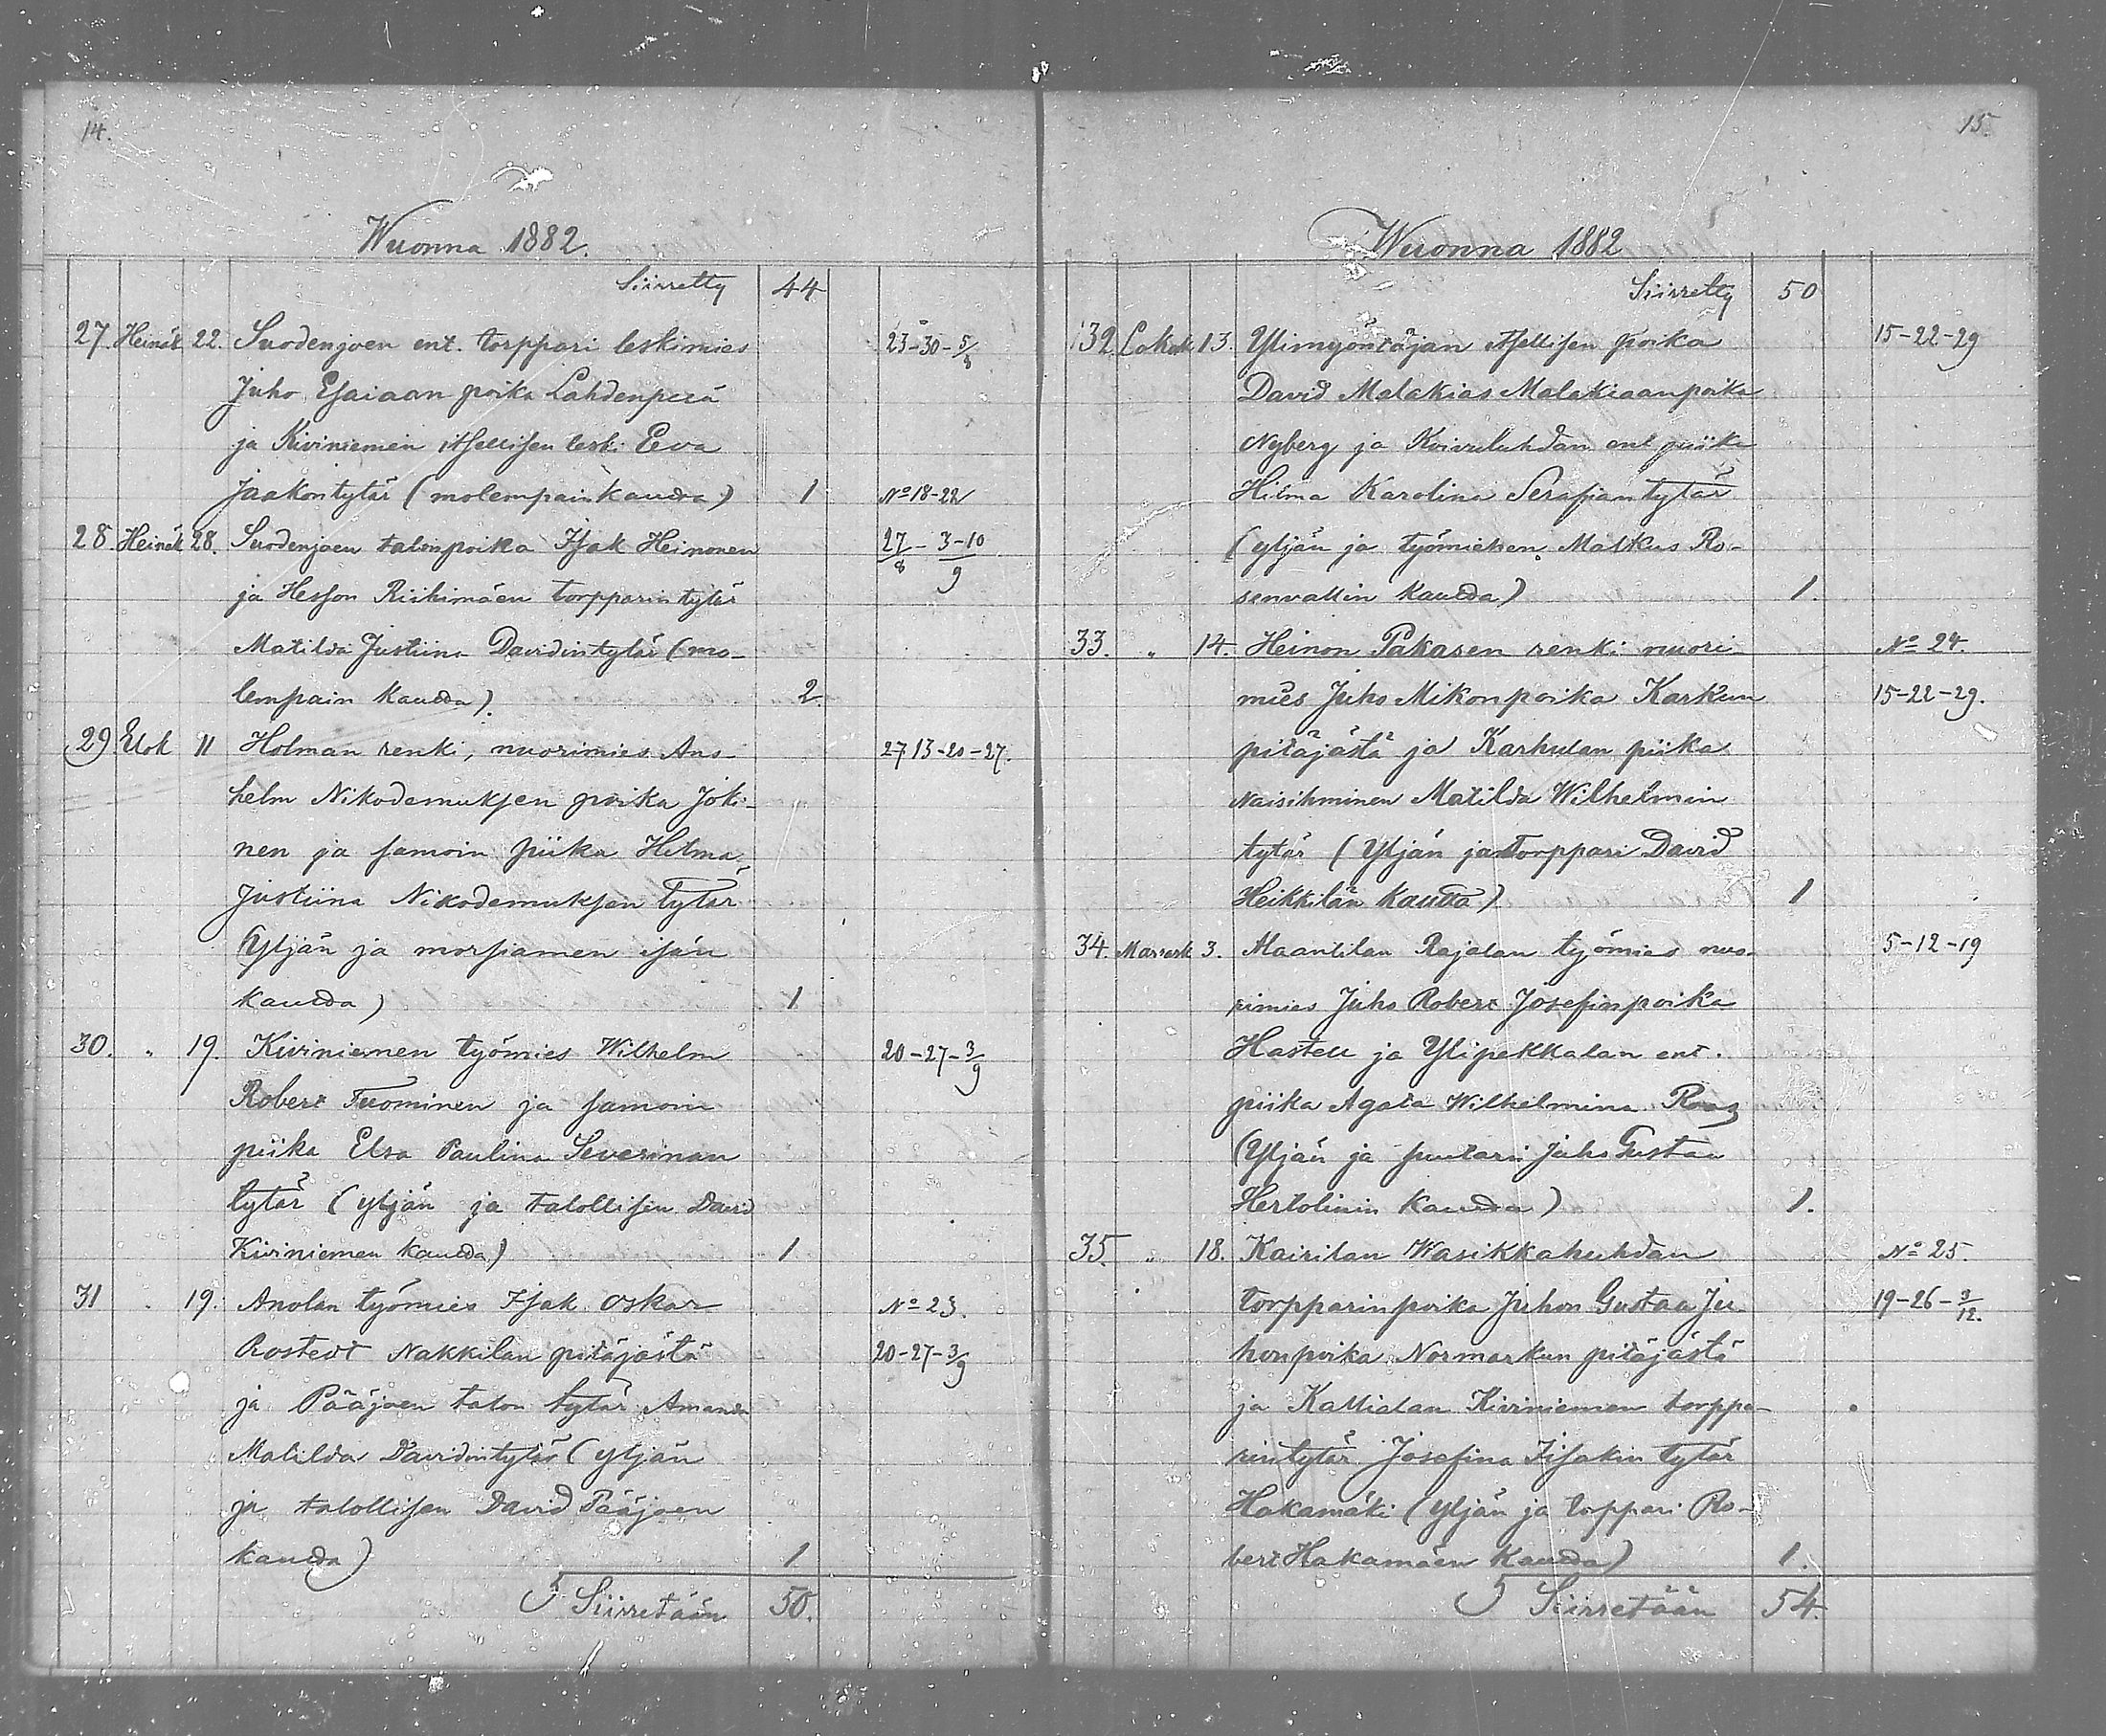 14.
Wuonna 1882.
Siirretty 44
27. Heinäk 22. Suodenjoen ent. torppari leskimies 23-30-5/8
Juho Esaiaan poika Lahdenperä
ja Kiviniemen itsellisen leski Eeva
Jaakontytär (molempain kautta) 1 No 18-22
28. Heinäk 28. Suodenjoen talonpoika Isak Heinonen 27/8 - 3-10/9
ja Hesson Riihimäen torpparin tytär
Matilda Justiina Davidintytär (mo-
lempain kautta). 2
29. Elok 11 Holman renki, nuorimies Ans- 27 13-20-27.
helm Nikodemuksen poika Joki-
nen ja samoin piika Hilma
Justiina Nikodemuksen tytär
(Yljän ja morsiamen isän
kautta) 1
30. " 19. Kiviniemen työmies Wilhelm 20-27-3/9
Robert Tuominen ja samoin
piika Elsa Paulina Severinan
tytär (yljän ja talollisen David
Kiviniemen kautta) 1
31 " 19. Anolan työmies Isak Oskar No 23.
Rostedt Nakkilan pitäjästä 20-27-3/9
ja Pääjoen talon tytär Amanda
Matilda Davidintytär (yljän
ja talollisen David Pääjoen
kautta) 1
5 Siirretään 50.
15.
Wuonna 1882
Siirretty 50
32. Lokak 13. Ylimyöntäjan itsellisen poika 15-22-29
David Malakias Malakiaanpoika
Nyberg ja Koivuluhdan ent piika
Hilma Karolina Serafiantytär
(yljän ja työmiehen Malkus Ro-
senvallin kautta) 1.
33. " 14. Heinon Pakasen renki nuori- No 24.
mies Juho Mikonpoika Karkun 15-22-29.
pitäjästä ja Karhulan piika
Naisihminen Matilda Wilhelmin
tytär (Yljän ja torppari David
Heikkilän kautta) 1
34. Marrask 3. Maantilan Rajalan työmies nuo- 5-12-19
rimies Juho Robert Josefinpoika
Hastell ja Ylipekkalan ent.
piika Agata Wilhelmina Roos
(Yljän ja suutari Juho Gustaa
Hertolinin kautta) 1.
35. " 18. Kairilan Wasikkahuhdan No 25.
torpparinpoika Juhon Gustaa Ju 19-26-3/12.
honpoika Normarkun pitäjästä
ja Kallialan Kiviniemen torppa-
rintytär Josefina Iisakin tytär
Hakamäki (yljän ja torppari Ro-
bert Hakamäen kautta) 1.
5 Siirretään 54.